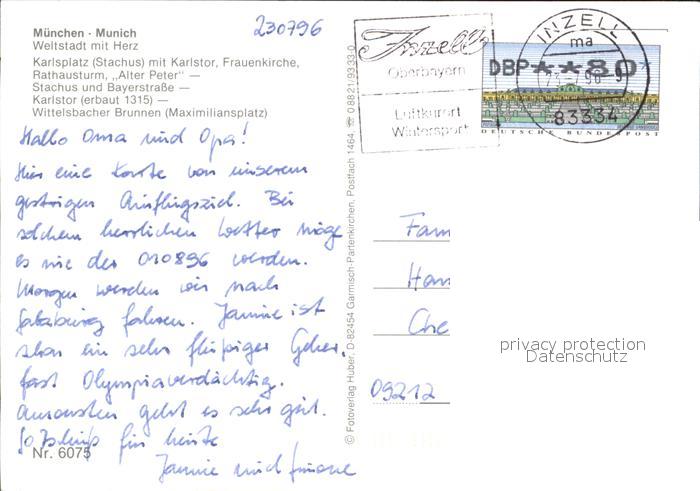 München · Munich
Weltstadt mit Herz
Karlsplatz (Stachus) mit Karlstor, Frauenkirche,
Rathausturm, „Alter Peter" —
Stachus und Bayerstraße —
Karlstor (erbaut 1315) —
Wittelsbacher Brunnen (Maximiliansplatz)
230796
Hallo Oma und Opa!
Hier eine Karte von unserem
gestrigen Ausflugsziel. Bei
solchem herrlichen Wetter möge
es nie der 010896 werden.
Morgen werden wir nach
Salzburg fahren. Janine ist
schon ein sehr fleißiger Geher,
fast Olympiaverdächtig.
Ansonsten geht es sehr gut.
So Tschüß für heute
Janine und Simone
Nr. 6075
© Fotoverlag Huber, D-82454 Garmisch-Partenkirchen, Postfach 1464, ☎ 08821/9333-0
Inzell
Oberbayern
Luftkurort
Wintersport
INZELL
ma
83334
DBP**80
DEUTSCHE BUNDESPOST
Fam
Han
Che
09212
privacy protection
Datenschutz